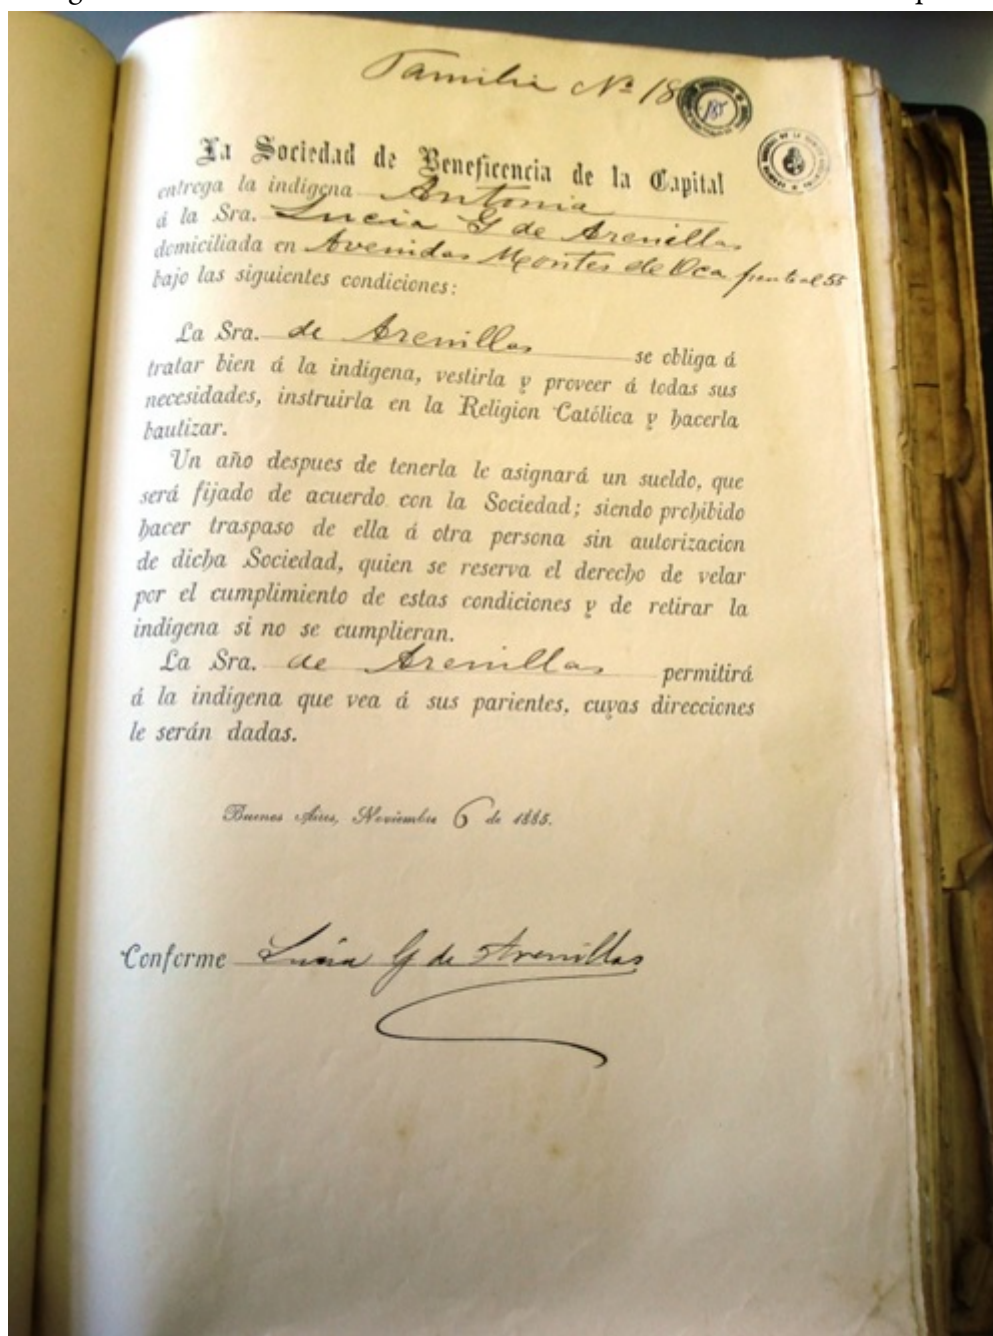 Familia Nº 18
185
La Sociedad de Beneficencia de la Capital
entrega la indígena Antonia
á la Sra. Lucia G de Arenillas
domiciliada en Avenidas Montes de Oca frente al 55
bajo las siguientes condiciones:
La Sra. de Arenillas se obliga á
tratar bien á la indígena, vestirla y proveer á todas sus
necesidades, instruirla en la Religion Católica y hacerla
bautizar.
Un año despues de tenerla le asignará un sueldo, que
será fijado de acuerdo con la Sociedad; siendo prohibido
hacer traspaso de ella á otra persona sin autorizacion
de dicha Sociedad, quien se reserva el derecho de velar
por el cumplimiento de estas condiciones y de retirar la
indígena si no se cumplieran.
La Sra. de Arenillas permitirá
á la indígena que vea á sus parientes, cuyas direcciones
le serán dadas.
Buenos Aires, Noviembre 6 de 1885.
Conforme Lucia G de Arenillas